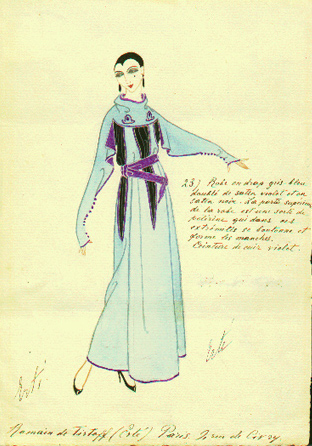 23) Robe en drap gris bleu
doublé de satin violet et en
satin noir. La partie supérieure
de la robe est une sorte de
pélérine qui dans ses
extrémités se boutonne et
forme les manches.
Ceinture de cuir violet.
Erté
Erté
Romain de Tirtoff (Erté) Paris.